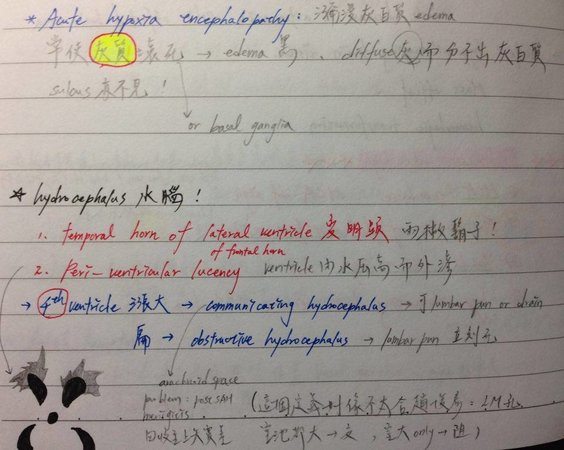 * Acute hypoxia encephalopathy: 瀰漫灰白質 edema
灰質壞死 → edema 黑、diffuse 灰 而分不出灰白質
sulcus 看不見!
or basal ganglia
☆ hydrocephalus 水腦!
1. temporal horn of lateral ventricle 變明顯 兩撇鬍子!
of frontal horn
2. Peri-ventricular lucency ventricle 內水壓高而外滲
→ 4th ventricle 擴大 → communicating hydrocephalus → 可 lumbar pun or drain
扁 → obstructive hydrocephalus → lumbar pun 立刻死
arachnoid space
problem: post SAH
meningitis
(這個定義好像不太合
回收至上矢質差 only → 阻)